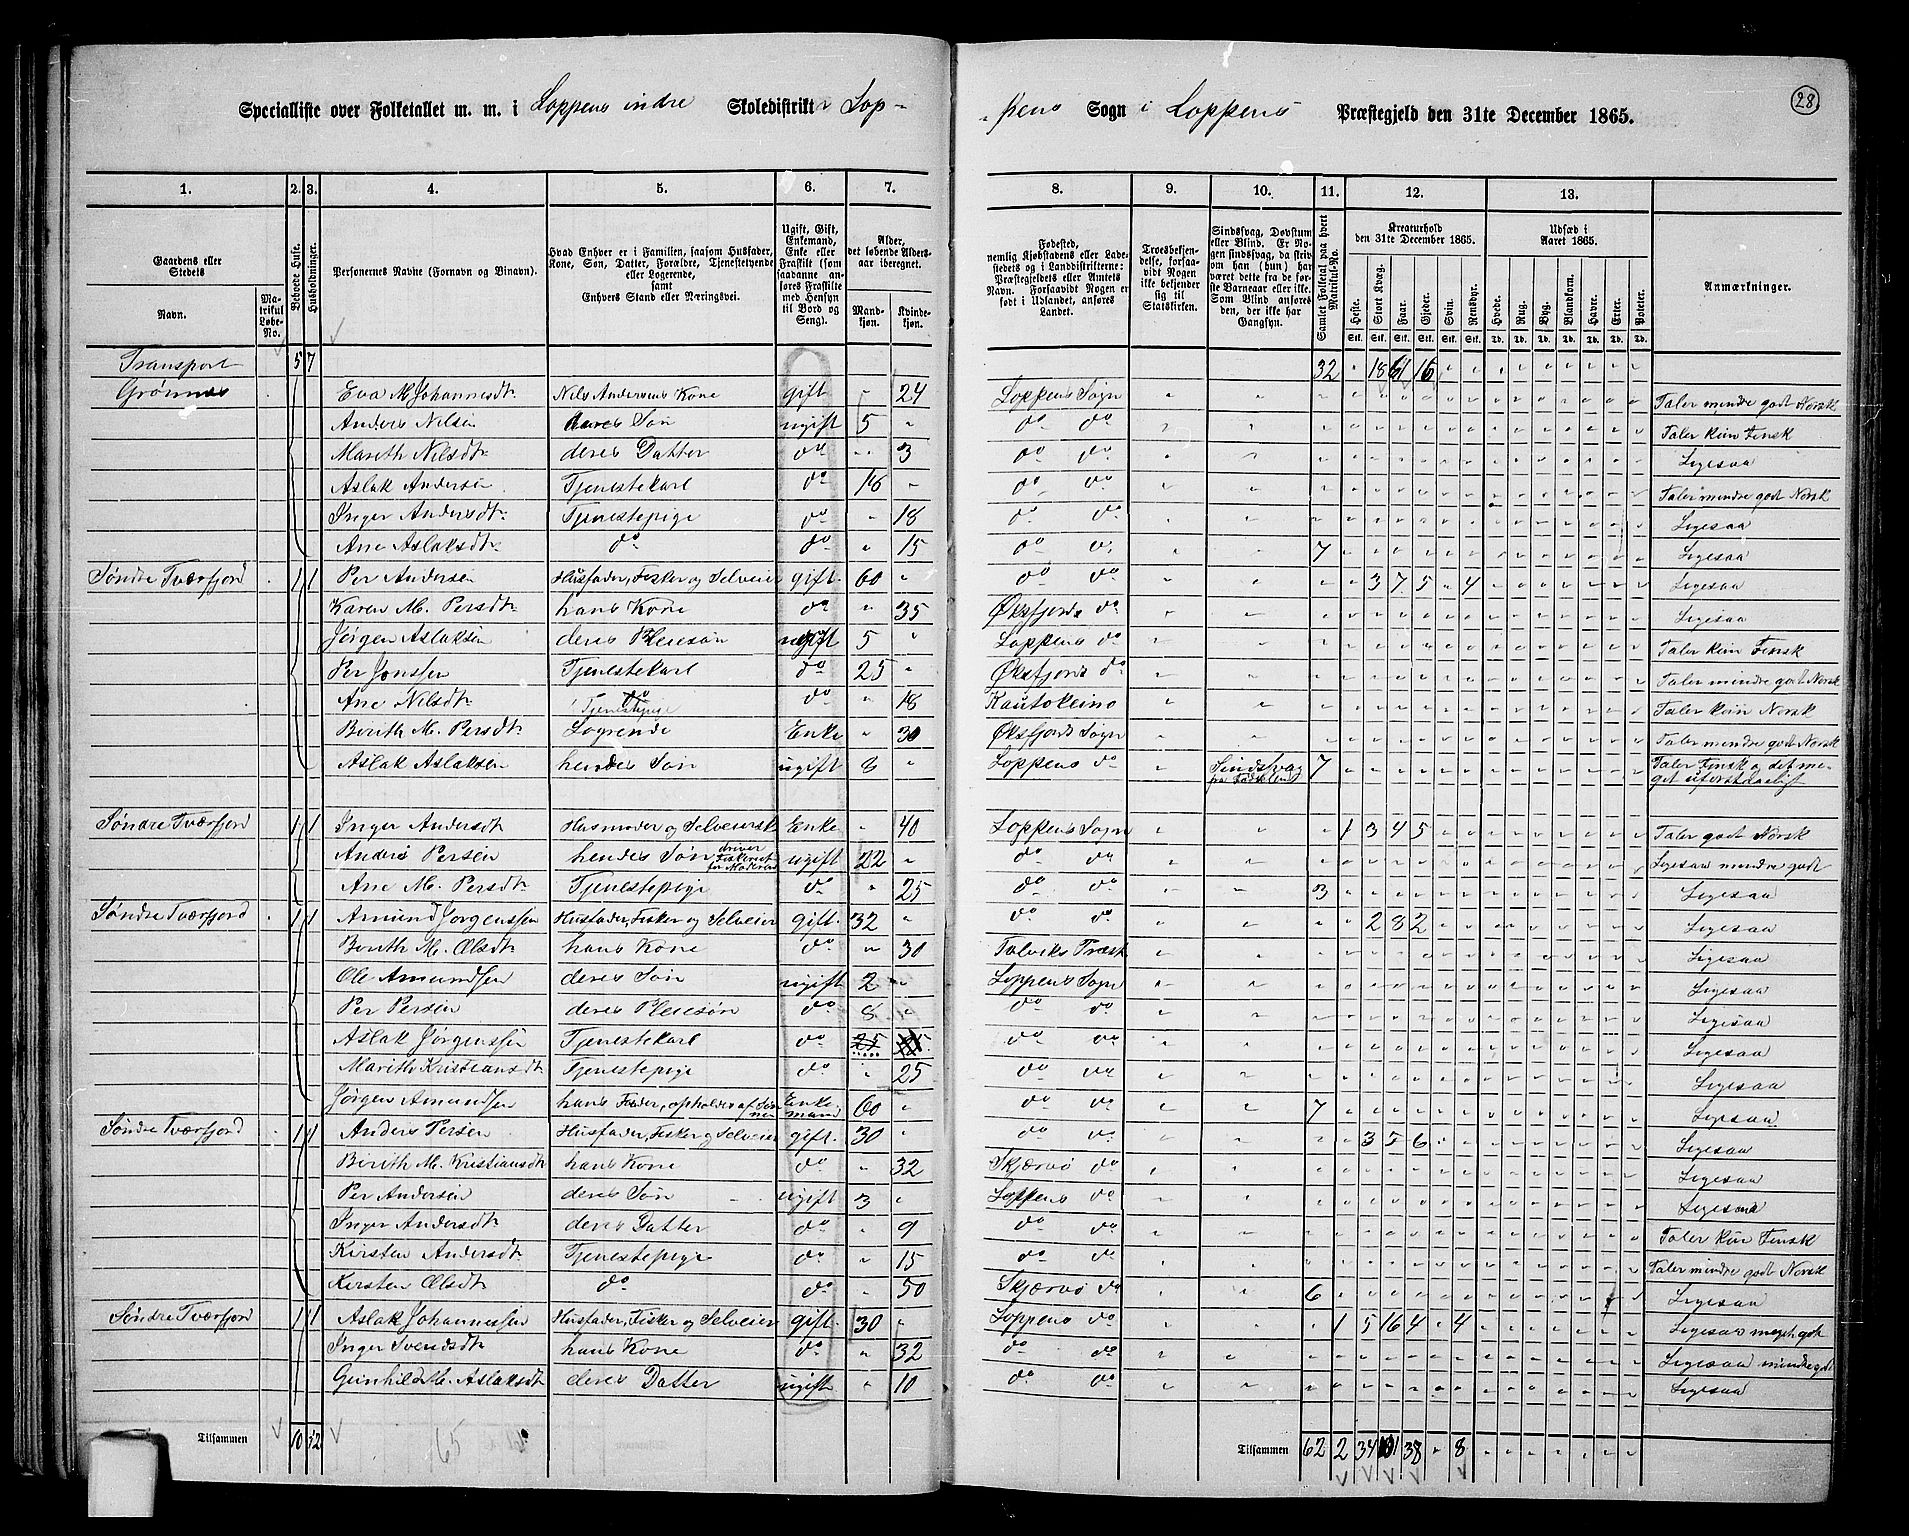 Specialliste over Folketallet m. m. i Loppens indre Skoledistrikt Lop-
-pens Sogn i Loppens Præstegjeld den 31te December 1865.
28
1. 2. 3. 4. 5. 6. 7.
Gaardens eller Stedets
Navn.
Matrikul Løbe-No.
Beboede Huse.
Husholdninger.
Personernes Navne (Fornavn og Binavn).
Hvad Enhver er i Familien, saasom Husfader, Kone, Søn, Datter, Forældre, Tjenestetyende eller Logerende, samt Enhvers Stand eller Næringsvei.
Ugift, Gift, Enkemand, Enke eller Fraskilte (som saadanne anføres Fraskilte med Hensyn til Bord og Seng).
Alder, det løbende Alders-aar iberegnet.
Mandkjøn. Kvindekjøn.
8. 9. 10. 11. 12. 13.
Fødested, nemlig Kjøbstadens eller Ladestedets og i Landdistrikterne: Præstegjeldets eller Amtets Navn. Forsaavidt Nogen er født i Udlandet, anføres Landet.
Troesbekjendelse, forsaavidt Nogen ikke bekjender sig til Statskirken.
Sindssvag, Døvstum eller Blind. Er Nogen sindssvag, da skrives om han (hun) har været dette fra de første Barneaar eller ikke. Som Blind anføres den, der ikke har Gangsyn.
Samlet Folketal paa hvert Matrikul-No.
Kreaturhold den 31te December 1865.
Heste. Stort Kvæg. Faar. Gjeder. Svin. Rensdyr.
Udsæd i Aaret 1865.
Hvede. Rug. Byg. Blandkorn. Havre. Erter. Poteter.
Anmærkninger.
Transport 5 7 32 " 18 61 16
Grønnes Eva M. Johannesdtr Nils Andersens Kone gift " 24 Loppens Sogn Taler mindre godt Norsk
Anders Nilsen deres Søn ugift 5 " do do Taler kun Finsk
Marith Nilsdtr deres Datter do " 3 do do Ligesaa
Aslak Andersen Tjenestekarl do 16 " do do Taler mindre godt Norsk
Inger Andersdtr Tjenestepige do " 18 do do Ligesaa
Ane Aslaksdtr do do " 15 do do 7 Ligesaa
Søndre Tværfjord 1 1 Per Andersen Husfader, Fisker og Selveier gift 60 " do do 3 7 5 " 4 Ligesaa
Karen M. Persdtr hans Kone do " 35 Øksfjords do Ligesaa
Jørgen Aslaksen deres Pleiesøn ugift 5 " Loppens do Taler kun Finsk
Per Jonssen Tjenestekarl do 25 " Øksfjords do Taler mindre godt Norsk
Ane Nilsdtr Tjenestepige do " 18 Kautokeino Taler kun Norsk
Berith M. Persdtr Logrende Enke " 30 Øksfjords Sogn Taler mindre godt Norsk
Aslak Aslaksen hendes Søn ugift 8 " Loppens do Sindssvag fra Fødselen 7 Taler Finsk og det meget uforstaaeligt
Søndre Tværfjord 1 1 Inger Andersdtr Husmoder og Selveierske Enke " 40 Loppens Sogn 1 3 4 5 Taler godt Norsk
Anders Persen hendes Søn driver Fiskeriet for Moderen ugift 22 " do do Ligesaa mindre godt
Ane M. Persdtr Tjenestepige do " 25 do do 3 Ligesaa
Søndre Tværfjord 1 1 Amund Jørgenssen Husfader, Fisker og Selveier gift 32 " do do 2 8 2 Ligesaa
Berith M. Olsdtr hans Kone do " 30 Talviks Præst. Ligesaa
Ole Amundsen deres Søn ugift 2 " Loppens Sogn Ligesaa
Per Persen deres Pleiesøn do 8 " do do Ligesaa
Aslak Jørgenssen Tjenestekarl do 25 do do Ligesaa
Marith Kristiansdtr Tjenestepige do " 25 do do Ligesaa
Jørgen Amundsen hans Fader, opholdes af Sønnen Enkemand 60 " do do 7 Ligesaa
Søndre Tværfjord 1 1 Anders Persen Husfader, Fisker og Selveier gift 30 " do do 3 5 6 Ligesaa
Berith M. Kristiansdtr hans Kone do " 32 Skjærvø do Ligesaa
Per Andersen deres Søn ugift 3 " Loppens do Ligesaa
Inger Andersdtr deres Datter do " 9 do do Taler kun Finsk
Kirsten Andersdtr Tjenestepige do " 15 do do Taler mindre godt Norsk
Kersten Olsdtr do do " 50 Skjærvø do 6 Ligesaa
Søndre Tværfjord 1 1 Aslak Johannessen Husfader, Fisker og Selveier gift 30 " Loppens do 1 5 16 4 " 4 Ligesaa meget godt
Inger Svendsdtr hans Kone do " 32 do do Ligesaa mindre godt
Gunhild M. Aslaksdtr deres Datter ugift " 10 do do Ligesaa
Tilsammen 10 12 65
Tilsammen 62 2 34 101 38 " 8